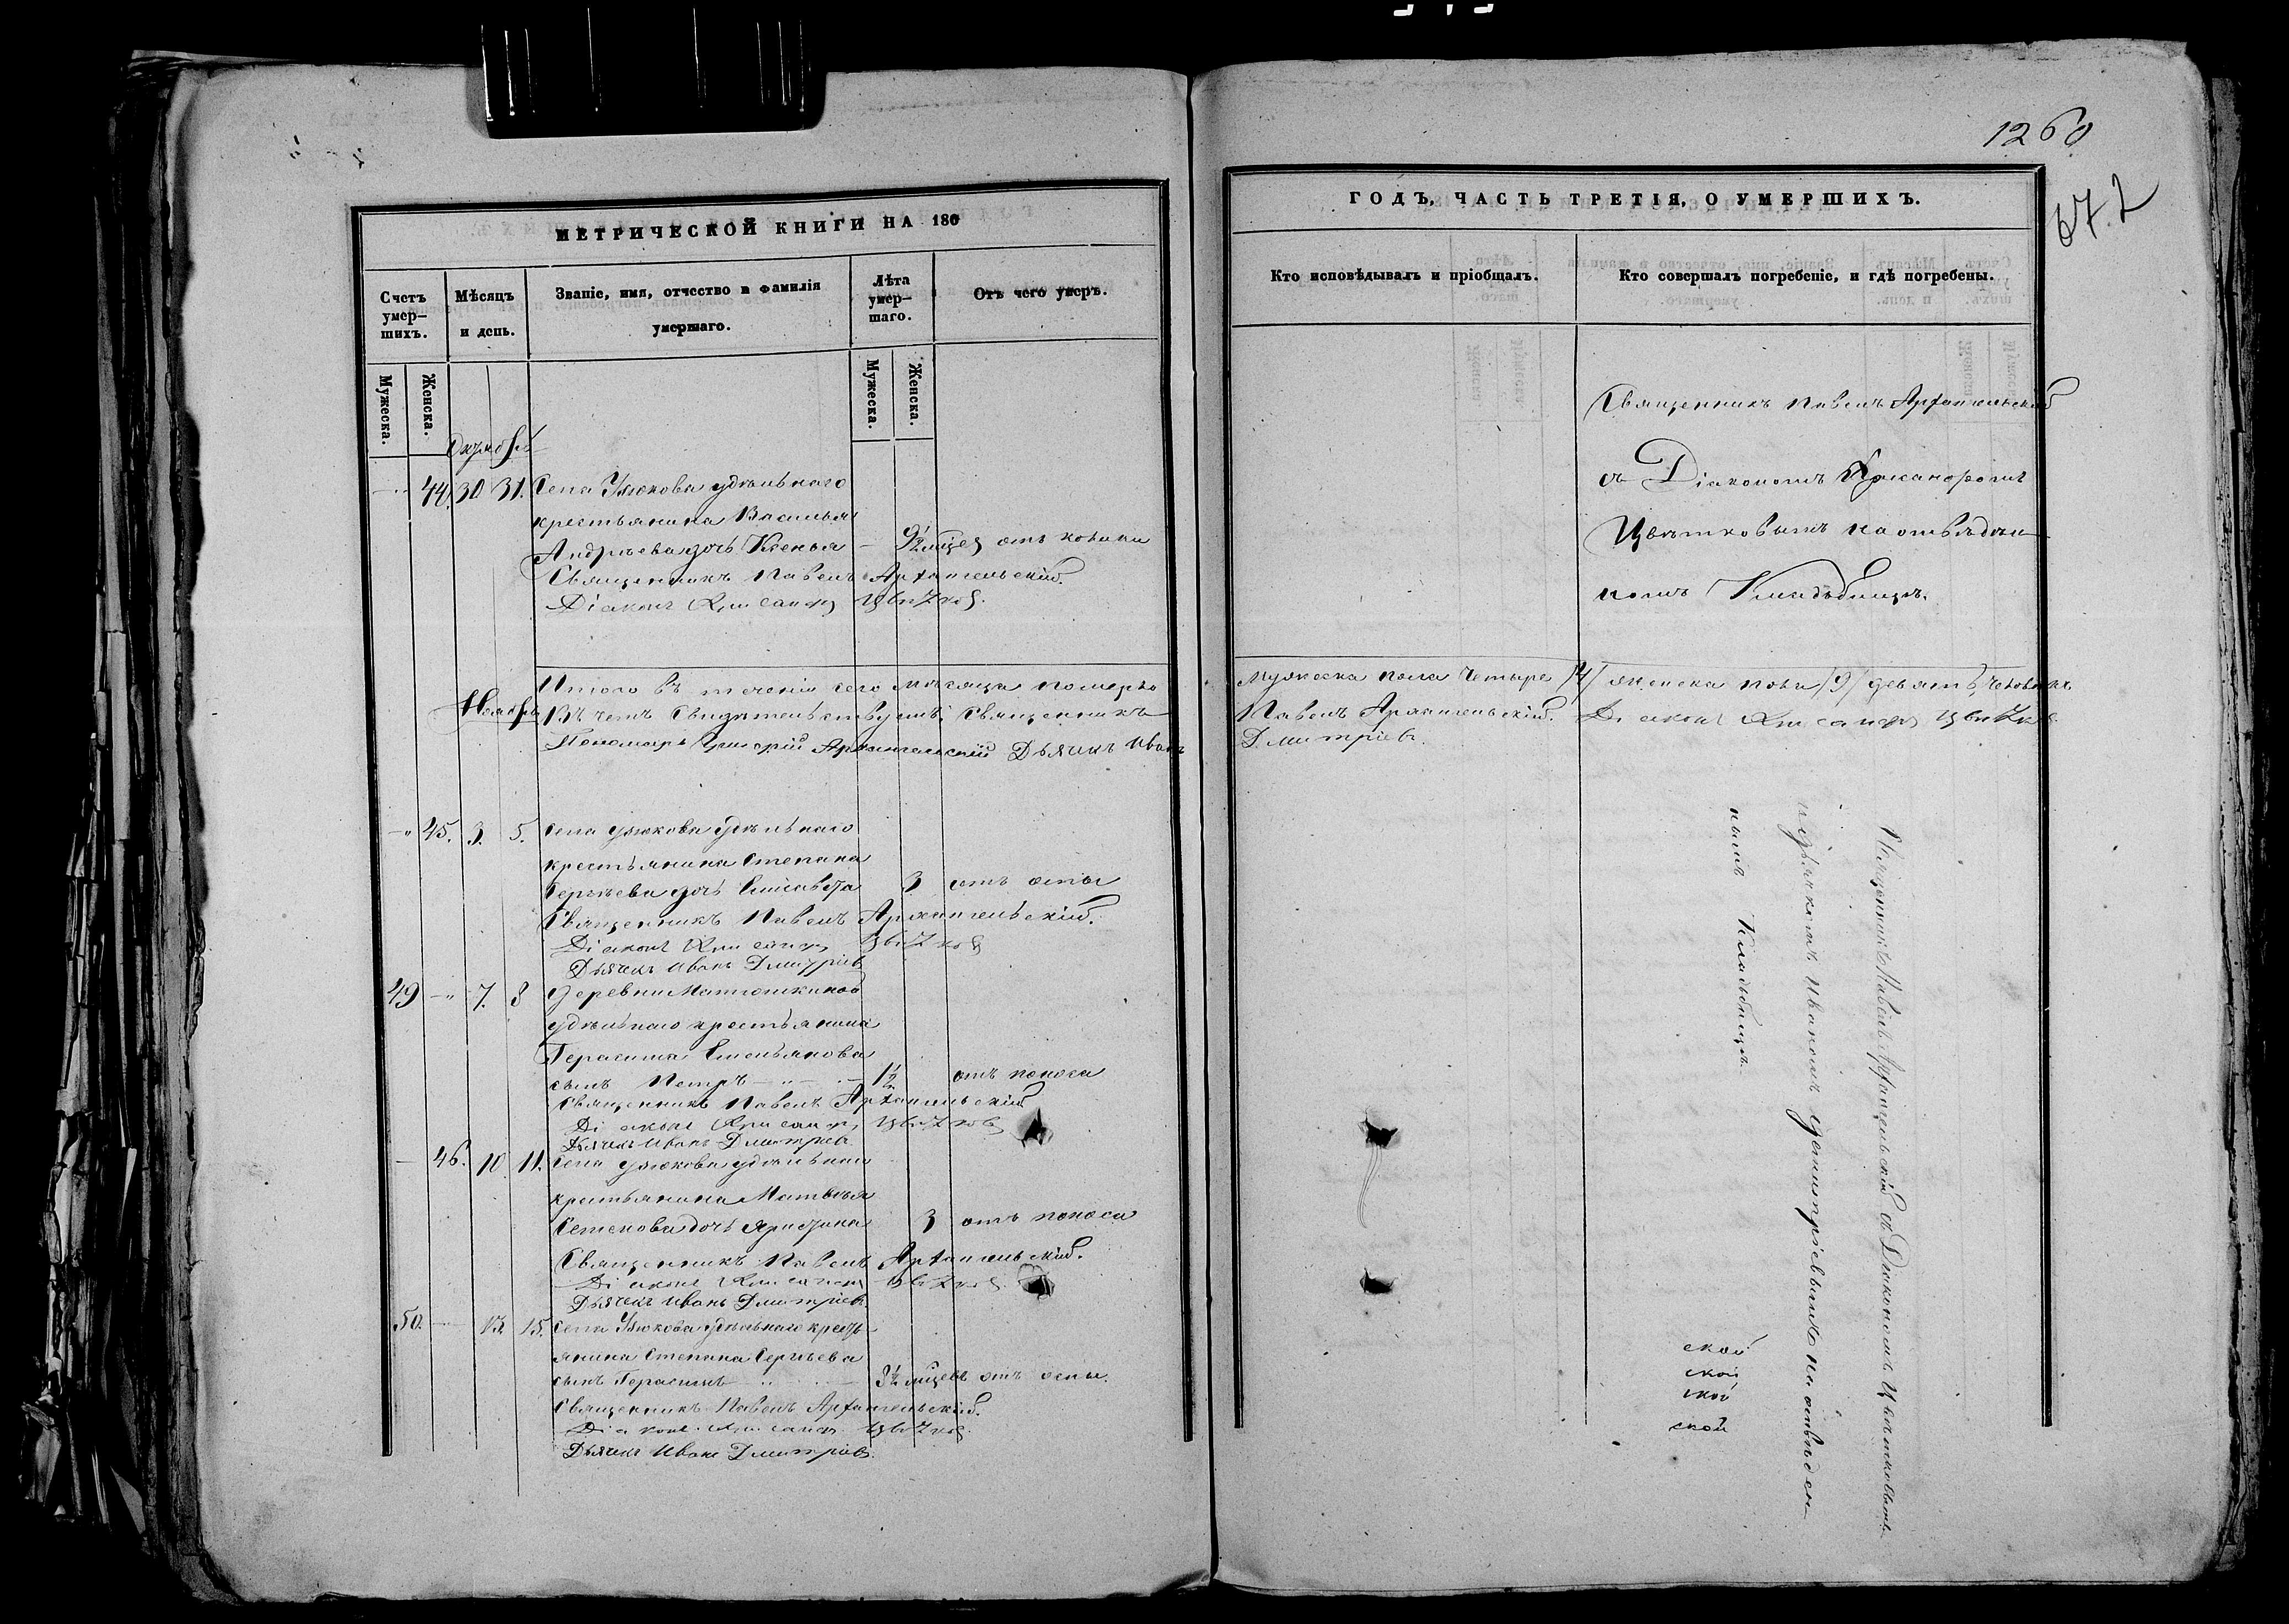 1260
672
МЕТРИЧЕСКОЙ КНИГИ НА 186
ГОДЪ, ЧАСТЬ ТРЕТІЯ, О УМЕРШИХЪ.
Счетъ умер-
шихъ.
Мѣсяцъ
и день.
Званіе, имя, отчество и фамилія
умершаго.
Лѣта
умер-
шаго.
Отъ чего умеръ.
Мужеска.
Женска.
Мужеска.
Женска.
Кто исповѣдывалъ и пріобщалъ.
Кто совершалъ погребеніе, и гдѣ погребены.
Октябрь
44. 30 31. Села Улюкова удѣльнаго
крестьянина Василья
Андреева дочь Ксенья 9½ мѣсец
Священникъ Павелъ Архангельскій.
Діаконъ Хрисанфъ Цвѣтков.
Священникъ Павелъ Архангельскій
съ Діакономъ Хрисанфомъ
Цвѣтковымъ на отведен-
номъ Кладбищѣ.
Итого въ теченіи сего мѣсяца померло
мужеска пола четыре /4/ женска пола /9/ девять человѣкъ
Ноябрь
Въ чемъ Свидѣтельствуемъ: Священникъ
Павелъ Архангельскій. Діаконъ Хрисанфъ Цвѣтков
Пономарь Григорій Архангельскій Дьячекъ Иванъ
Дмитріевъ.
45. 3. 5. Села Улюкова Удѣльнаго
крестьянина Степана
Сергѣева дочь Елисавета 3 отъ оспы
Священникъ Павелъ Архангельскій.
Діаконъ Хрисанфъ Цвѣтков
Дьячекъ Иванъ Дмитріев
49 7. 8 Деревни Матюшкиной
удѣльнаго крестьянина
Герасима Емельянова
сынъ Петръ 1½ отъ поноса
Священникъ Павелъ Архангельскій
Діаконъ Хрисанфъ Цвѣтков
Дьячекъ Иванъ Дмитріев.
46. 10 11. Села Улюкова удѣльнаго
крестьянина Матвѣя
Семенова дочь 3 отъ поноса
Священникъ Павелъ Архангельскій.
Діаконъ Хрисанфъ Цвѣтков
Дьячекъ Иванъ Дмитріевъ
50. 13. 15. Села Улюкова Удѣльнаго кресть-
янина Степана Сергѣева
сынъ Герасимъ 3½ мѣсецв отъ оспы.
Священникъ Павелъ Архангельскій.
Діаконъ Хрисанфъ Цвѣтков.
Дьячекъ Иванъ Дмитріевъ.
Священникъ Павелъ Архангельскій съ Діакономъ Цвѣтковымъ
и дьячкомъ Иваномъ Демитріевымъ на отведен-
ныхъ Кладбищѣ.
ской
ской
ской
ской